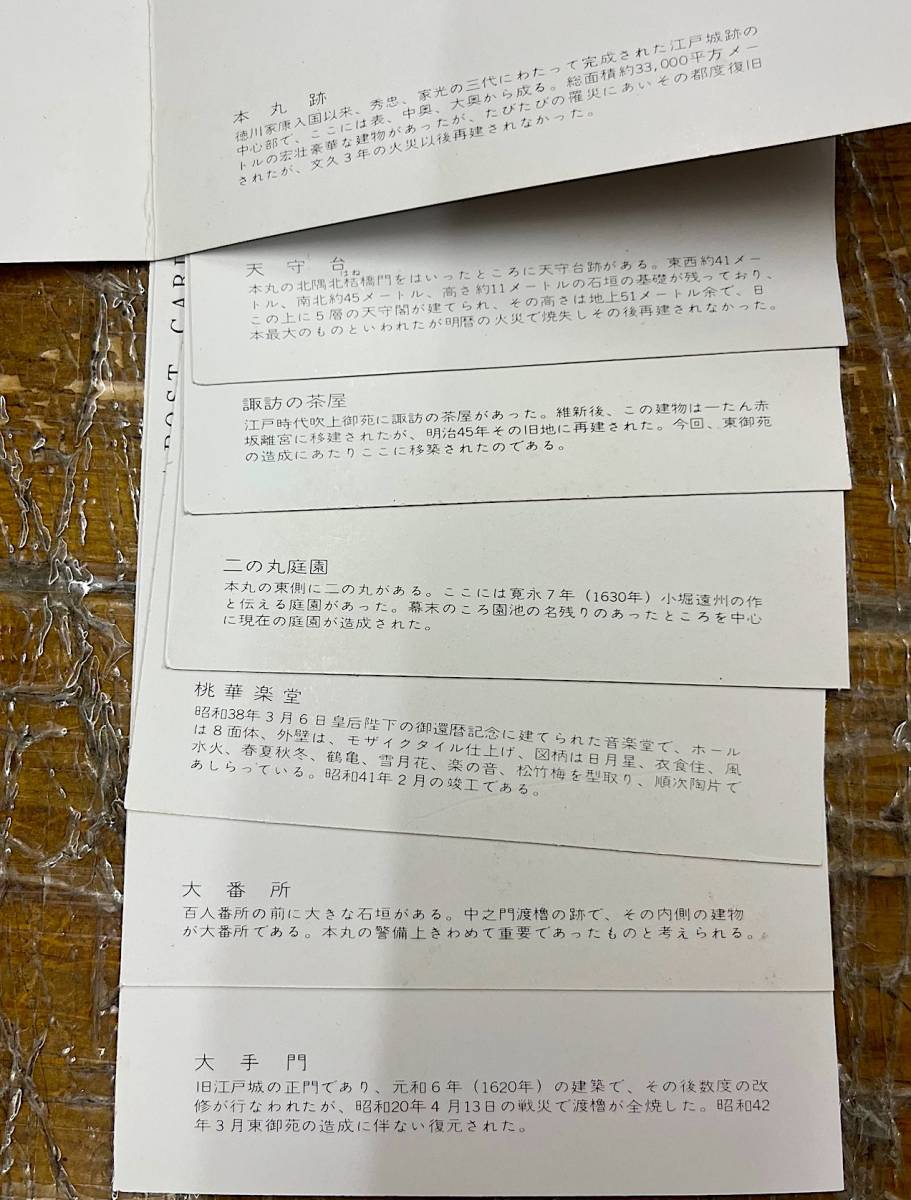 本丸跡
徳川家康入国以来、秀忠、家光の三代にわたって完成された江戸城跡の
中心部で、ここには表、中奥、大奥から成る。総面積約33,000平方メー
トルの宏壮豪華な建物があったが、たびたびの罹災にあいその都度復旧
されたが、文久3年の火災以後再建されなかった。
天守台
はね
本丸の北隅北桔橋門をはいったところに天守台跡がある。東西約41メー
トル、南北約45メートル、高さ約11メートルの石垣の基礎が残っており、
この上に5層の天守閣が建てられ、その高さは地上51メートル余で、日
本最大のものといわれたが明暦の火災で焼失しその後再建されなかった。
POST CAR
諏訪の茶屋
江戸時代吹上御苑に諏訪の茶屋があった。維新後、この建物は一たん赤
坂離宮に移建されたが、明治45年その旧地に再建された。今回、東御苑
の造成にあたりここに移築されたのである。
二の丸庭園
本丸の東側に二の丸がある。ここには寛永7年(1630年)小堀遠州の作
と伝える庭園があった。幕末のころ園池の名残りのあったところを中心
に現在の庭園が造成された。
桃華楽堂
昭和38年3月6日皇后陛下の御還暦記念に建てられた音楽堂で、ホール
は8面体、外壁は、モザイクタイル仕上げ、図柄は日月星、衣食住、風
水火、春夏秋冬、鶴亀、雪月花、楽の音、松竹梅を型取り、順次陶片で
あしらっている。昭和41年2月の竣工である。
大番所
百人番所の前に大きな石垣がある。中之門渡櫓の跡で、その内側の建物
が大番所である。本丸の警備上きわめて重要であったものと考えられる。
大手門
旧江戸城の正門であり、元和6年(1620年)の建築で、その後数度の改
修が行なわれたが、昭和20年4月13日の戦災で渡櫓が全焼した。昭和42
年3月東御苑の造成に伴ない復元された。